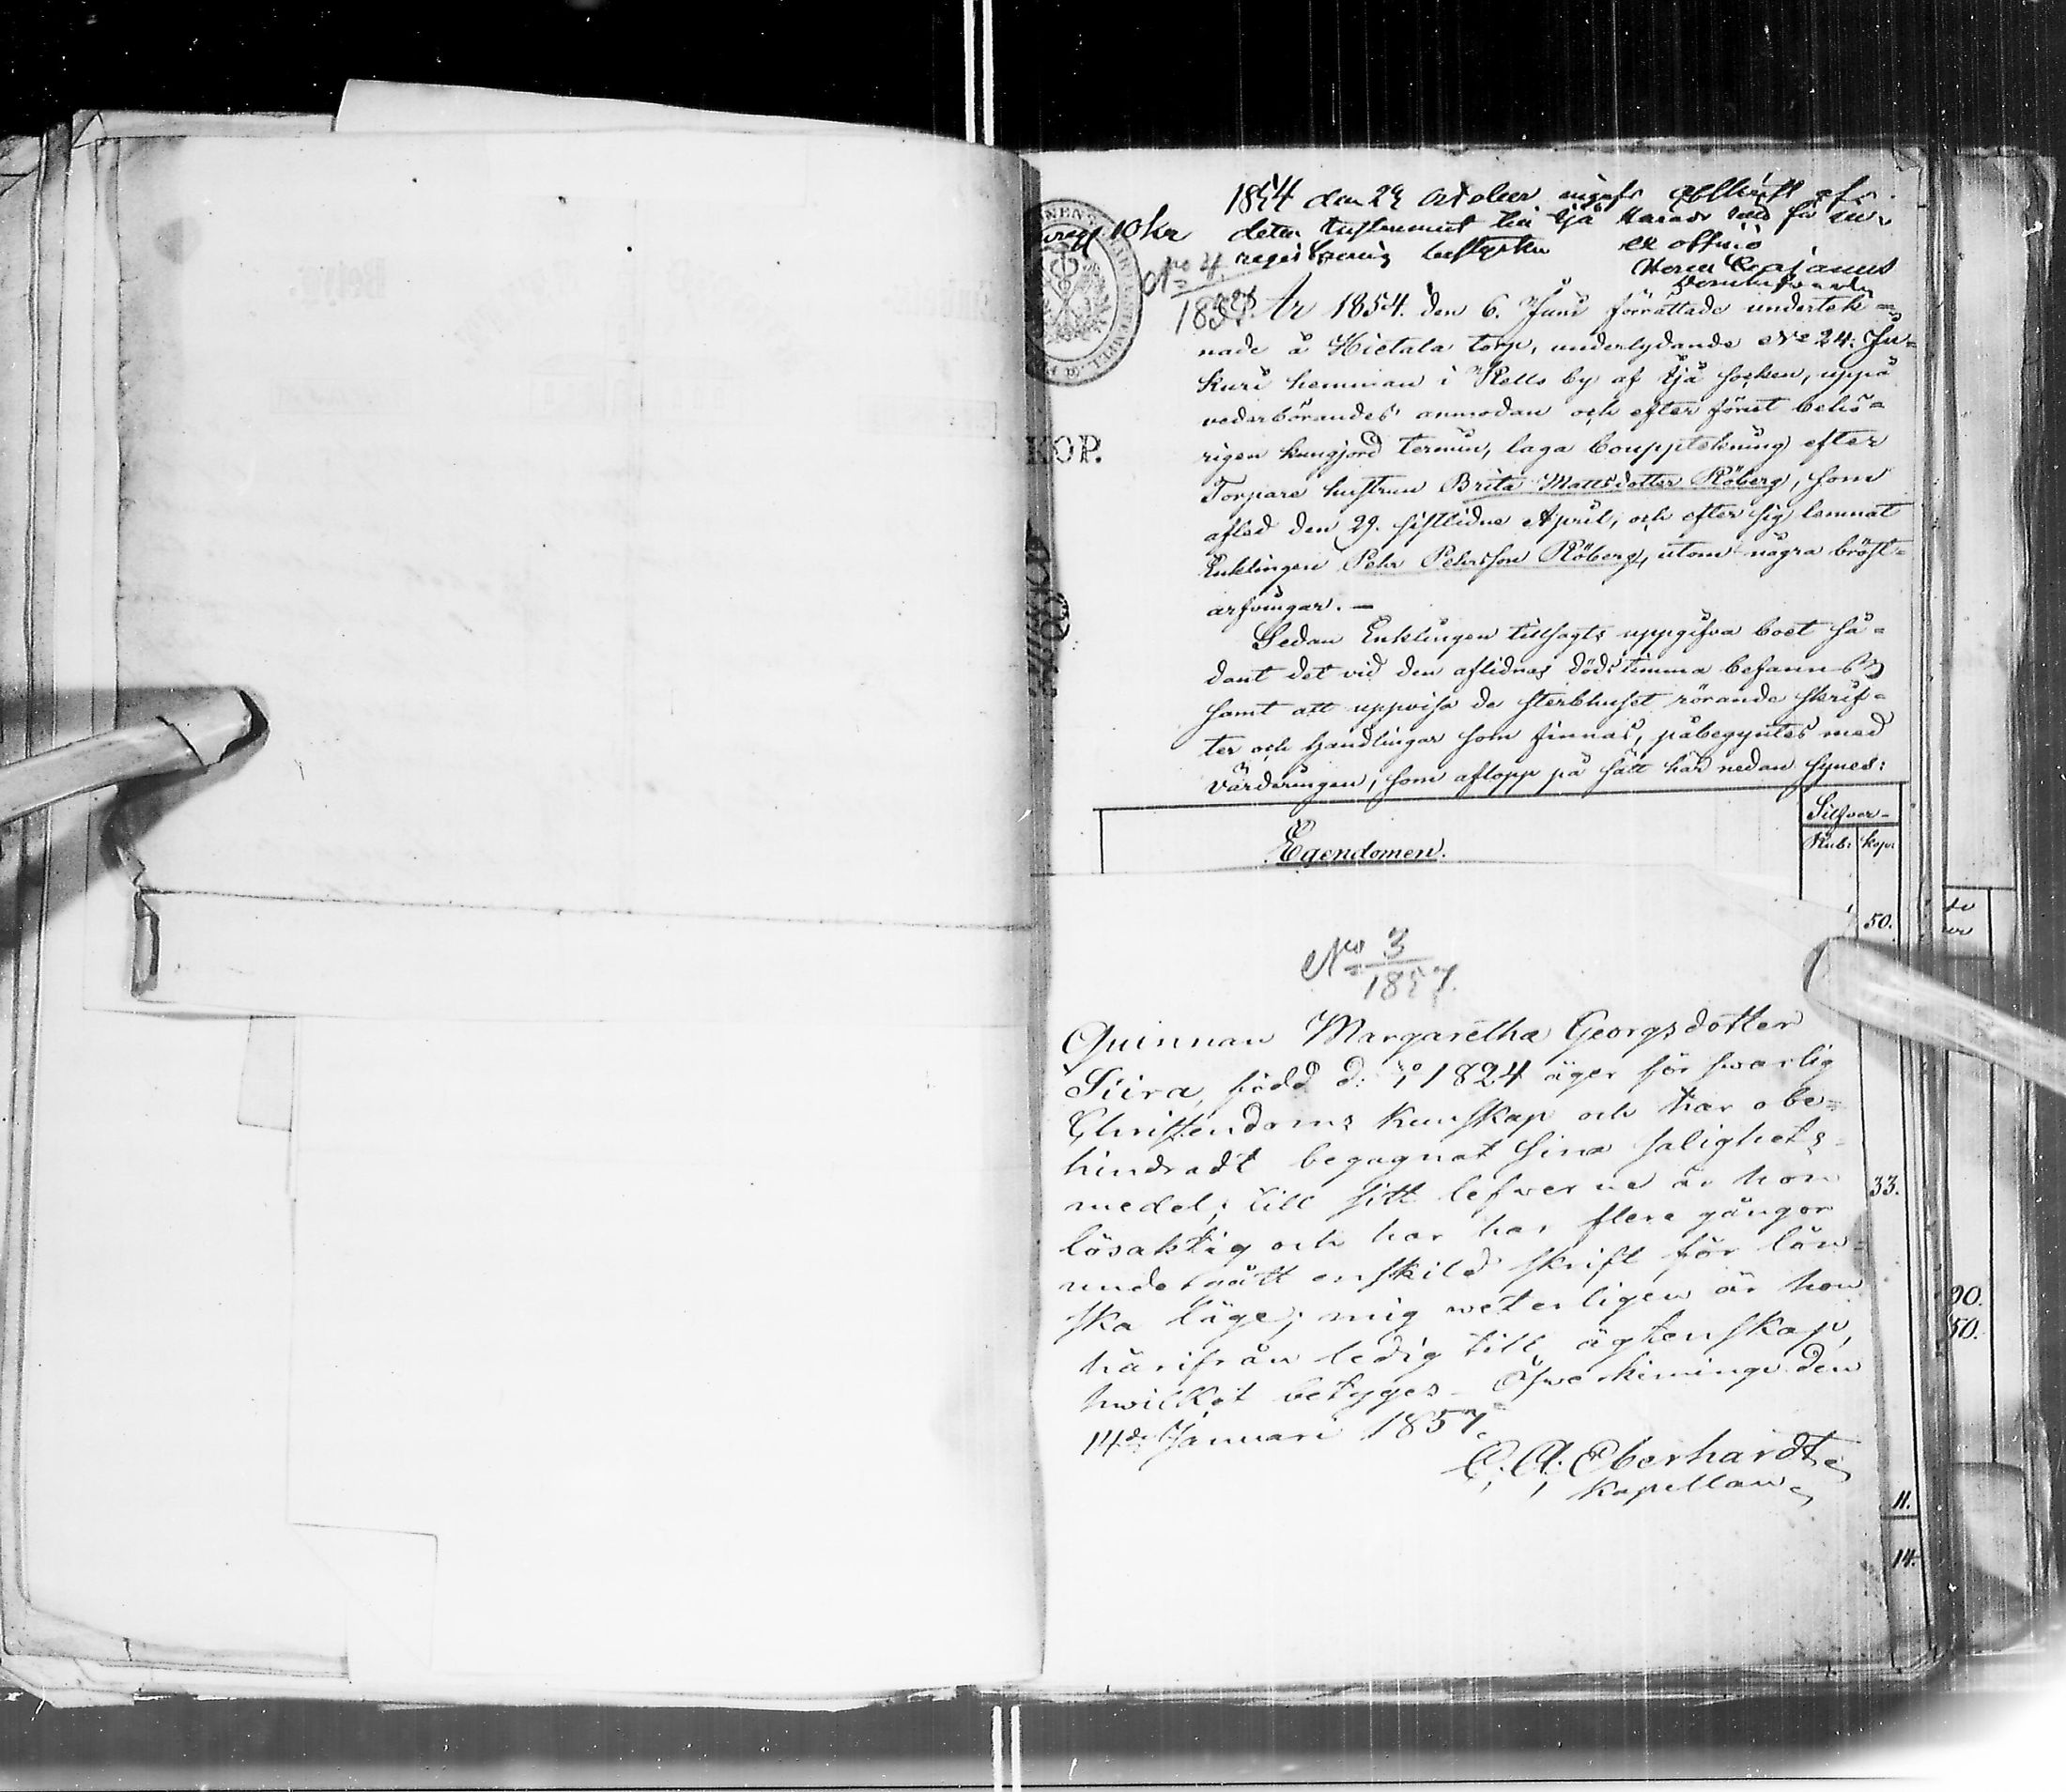 1854 den 29 October ingafs afskrift af
10 kr detta instrument till Ijå
registrering bestyrker ex officio
Domhafvande
År 1854. den 6. Juni förrättade underteck=
nade å Hietala torp, underlydande No 24: Ju=
kuri hemman i Kello by af Ijå socken, uppå
vederbörandes anmodan och efter förut behö=
rigen kungjord termin, laga bouppteckning efter
KOP.
Torpare hustrun Brita Mattsdotter Röberg, som
afled den 29. sistlidne April, och efter sig lemnat
Enklingen Pehr Pehrsson Röberg, utom några bröst=
arfvingar. —
Sedan Enklingen tillsagts uppgifva boet så=
dant det vid den aflidnas dödstimma befanns
samt att uppvisa de sterbhuset rörande skrif=
ter och handlingar som finnas, påbegyntes med
värderingen, som aflopp på sätt här nedan synes:
Silfver-
Egendomen.
Rub: kop:
50.
No 3
1857.
Quinnan Margaretha Georgsdotter
Siira, född d: 1824 äger förswarlig
Christendoms kunskap och har obe=
hindradt begagnat sina salighets-
medel; till sitt lefwerne är hon
33.
lösaktig och har har flere gånger
undergått enskild skrift för lön=
ska läge; mig weterligen är hon
härifrån ledig till ägtenskap,
hwilket betyges - Öfwerkiminge den
14de Januari 1857.
C. A. Eberhardt
Kapellan
11.
14.
90.
50.